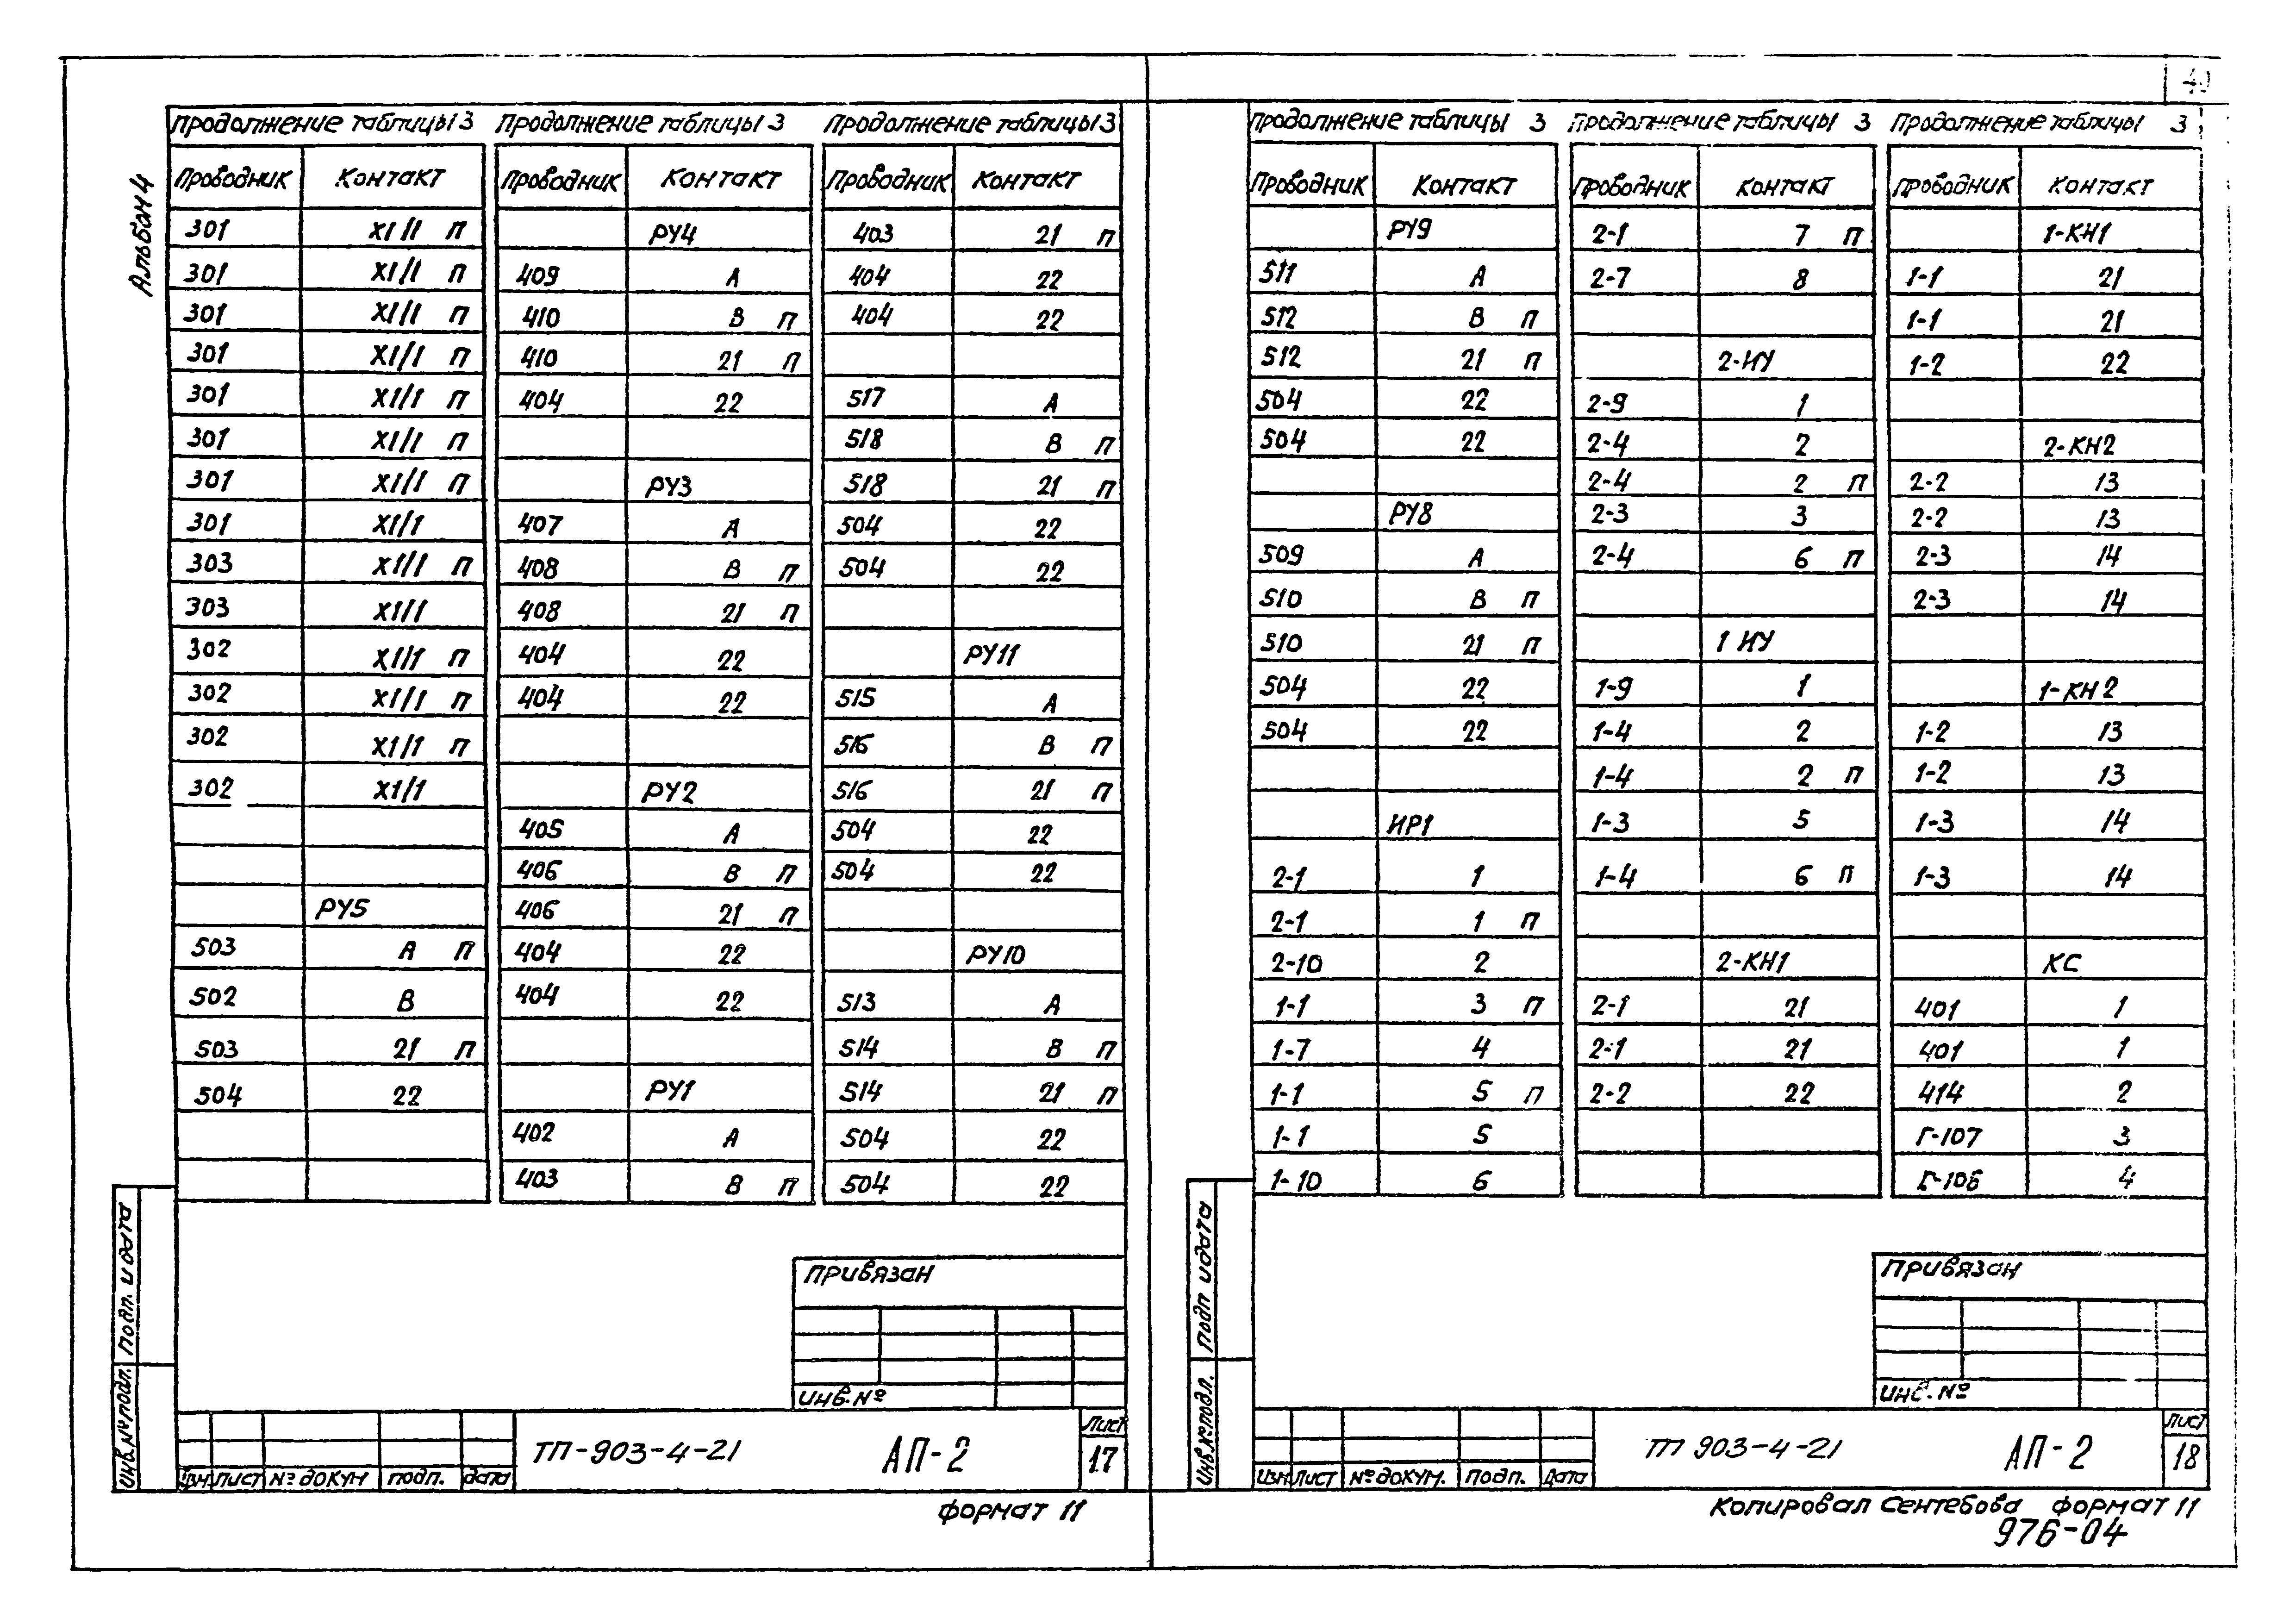 40
Альбом 4
Продолжение таблицы 3
Проводник Контакт
301 X1/1 П
301 X1/1 П
301 X1/1 П
301 X1/1 П
301 X1/1 П
301 X1/1 П
301 X1/1 П
301 X1/1
303 X1/1 П
303 X1/1
302 X1/1 П
302 X1/1 П
302 X1/1 П
302 X1/1
РУ5
503 А П
502 В
503 21 П
504 22
Продолжение таблицы 3
Проводник Контакт
РУ4
409 А
410 В П
410 21 П
404 22
РУ3
407 А
408 В П
408 21 П
404 22
404 22
РУ2
405 А
406 В П
406 21 П
404 22
404 22
РУ1
402 А
403 В П
Продолжение таблицы 3
Проводник Контакт
403 21 П
404 22
404 22
517 А
518 В П
518 21 П
504 22
504 22
РУ11
515 А
516 В П
516 21 П
504 22
504 22
РУ10
513 А
514 В П
514 21 П
504 22
504 22
Привязан
Инв.№
Инв.№ подл. Подп. и дата
Изм Лист № докум подп. дата
ТП-903-4-21 АП-2
Лист
17
Формат 11
Продолжение таблицы 3
Проводник Контакт
РУ9
511 А
512 В П
512 21 П
504 22
504 22
РУ8
509 А
510 В П
510 21 П
504 22
504 22
ИР1
2-1 1
2-1 1 П
2-10 2
1-1 3 П
1-7 4
1-1 5 П
1-1 5
1-10 6
Продолжение таблицы 3
Проводник Контакт
2-1 7 П
2-7 8
2-ИУ
2-9 1
2-4 2
2-4 2 П
2-3 3
2-4 6 П
1 ИУ
1-9 1
1-4 2
1-4 2 П
1-3 5
1-4 6 П
2-КН1
2-1 21
2-1 21
2-2 22
Продолжение таблицы 3
Проводник Контакт
1-КН1
1-1 21
1-1 21
1-2 22
2-КН2
2-2 13
2-2 13
2-3 14
2-3 14
1-КН2
1-2 13
1-2 13
1-3 14
1-3 14
КС
401 1
401 1
414 2
Г-107 3
Г-106 4
Привязан
Инв. №
Инв.№ подл. Подп и дата
Изм Лист № докум. Подп. Дата
ТП 903-4-21 АП-2
Лист
18
Копировал Сентебова Формат 11
976-04